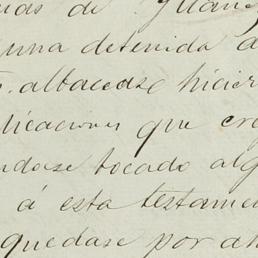 mas de
una detenida
albaceas hicier
licaciones que cre
ndose tocado alg
á esta testamen
quedase por ah